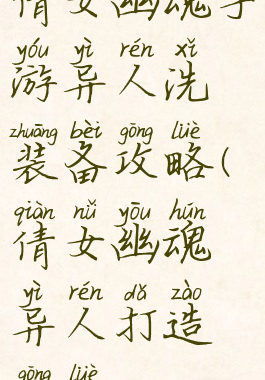 倩女幽魂手
yóu yì rén xǐ
游异人洗
zhuāng bèi gōng lüè
装备攻略(
qiàn nǚ yōu hún
倩女幽魂
yì rén dǎ zào
异人打造
gōng lüè